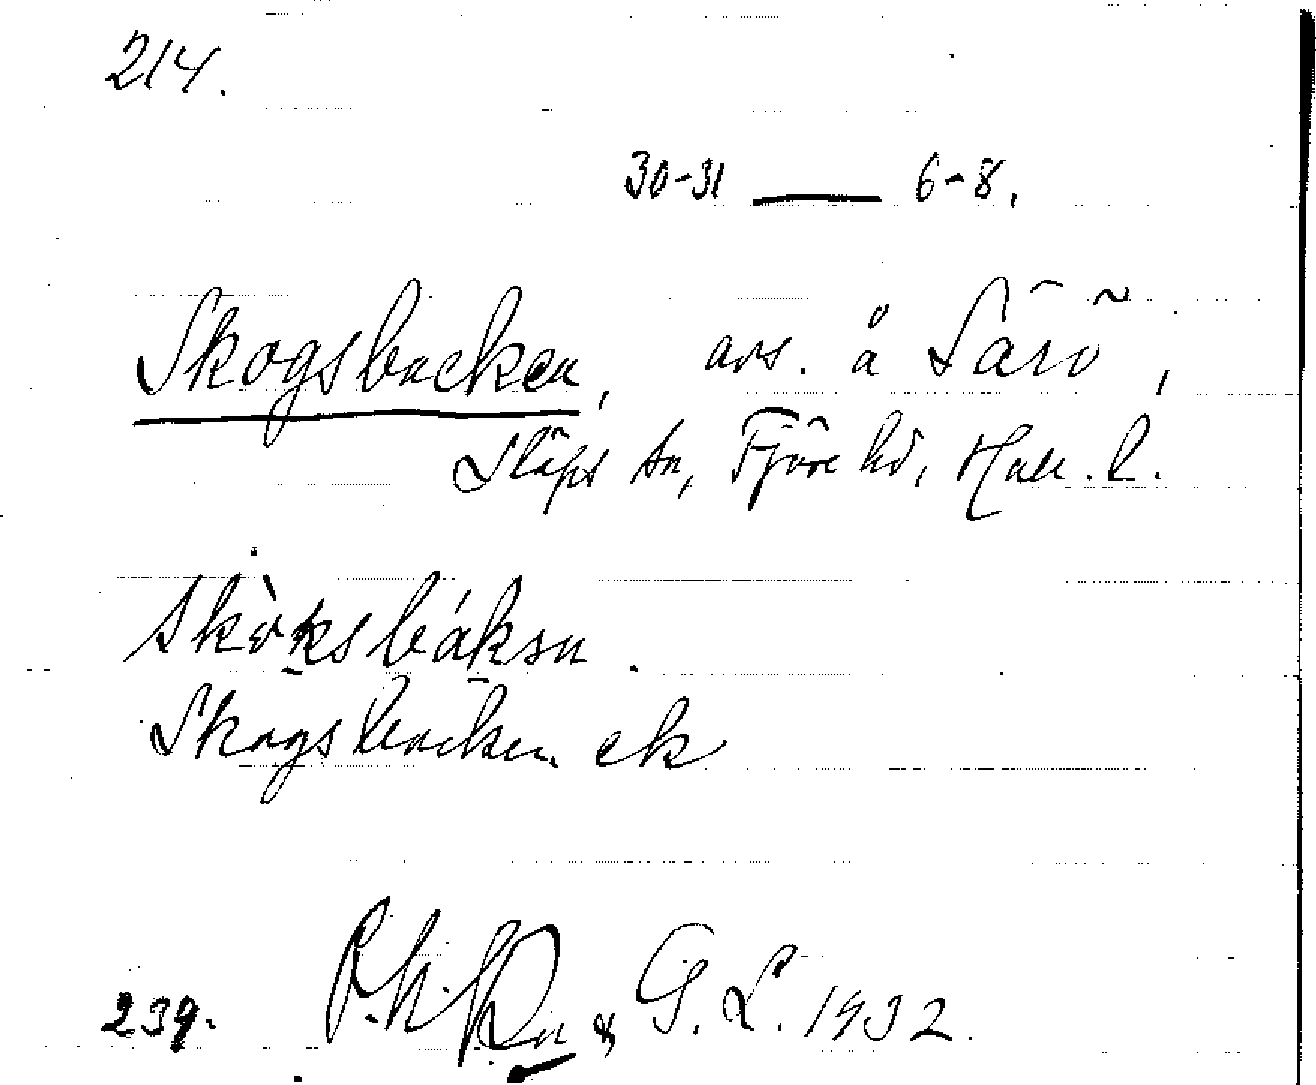 214.
30-31 — 6-8.
Skogsbacken, avs. å Särö,
Släps sn, Fjäre hd, Hall. l.
skòksbáksn.
Skogsbacken ek
239. & G. L. 1932.